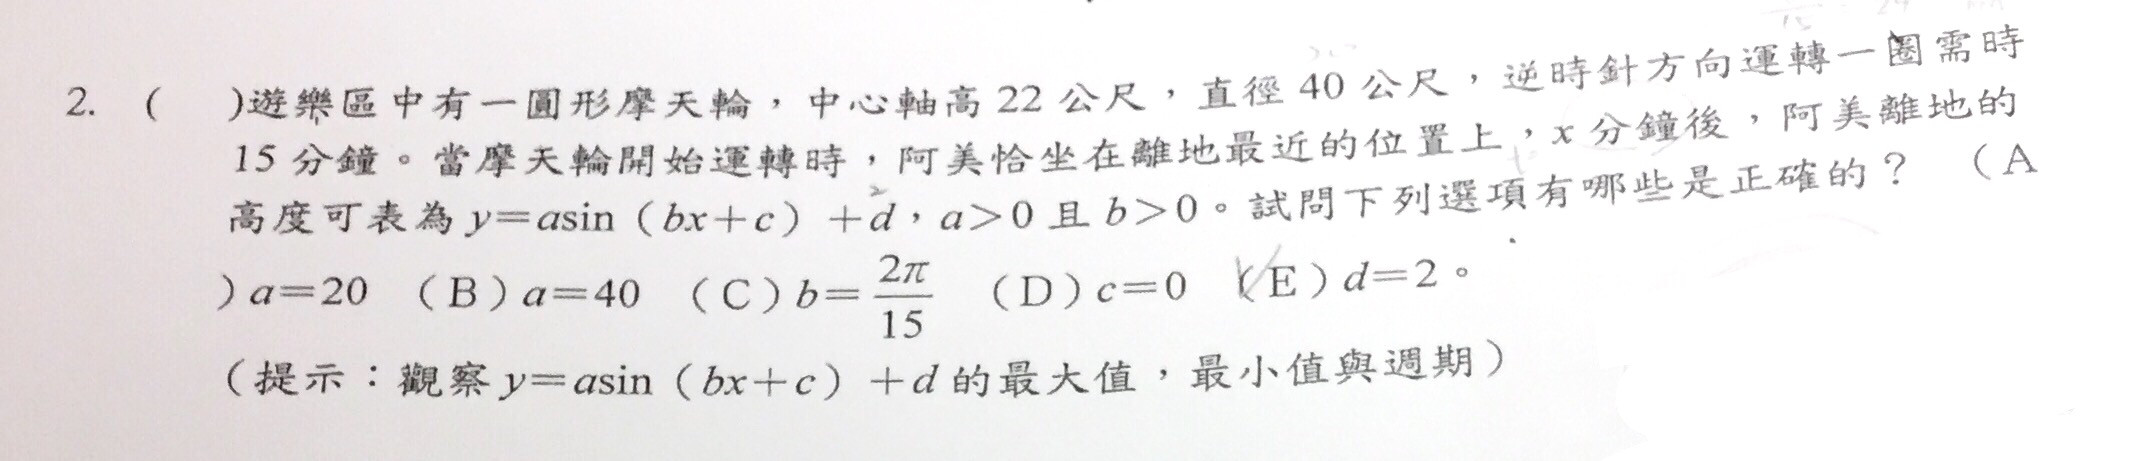 2. (　)遊樂區中有一圓形摩天輪，中心軸高 22 公尺，直徑 40 公尺，逆時針方向運轉一圈需時
15 分鐘。當摩天輪開始運轉時，阿美恰坐在離地最近的位置上，x 分鐘後，阿美離地的
高度可表為 y=asin（bx+c）+d，a>0 且 b>0。試問下列選項有哪些是正確的？（A
）a=20 （B）a=40 （C）b=2π/15 （D）c=0 （E）d=2。
（提示：觀察 y=asin（bx+c）+d 的最大值，最小值與週期）